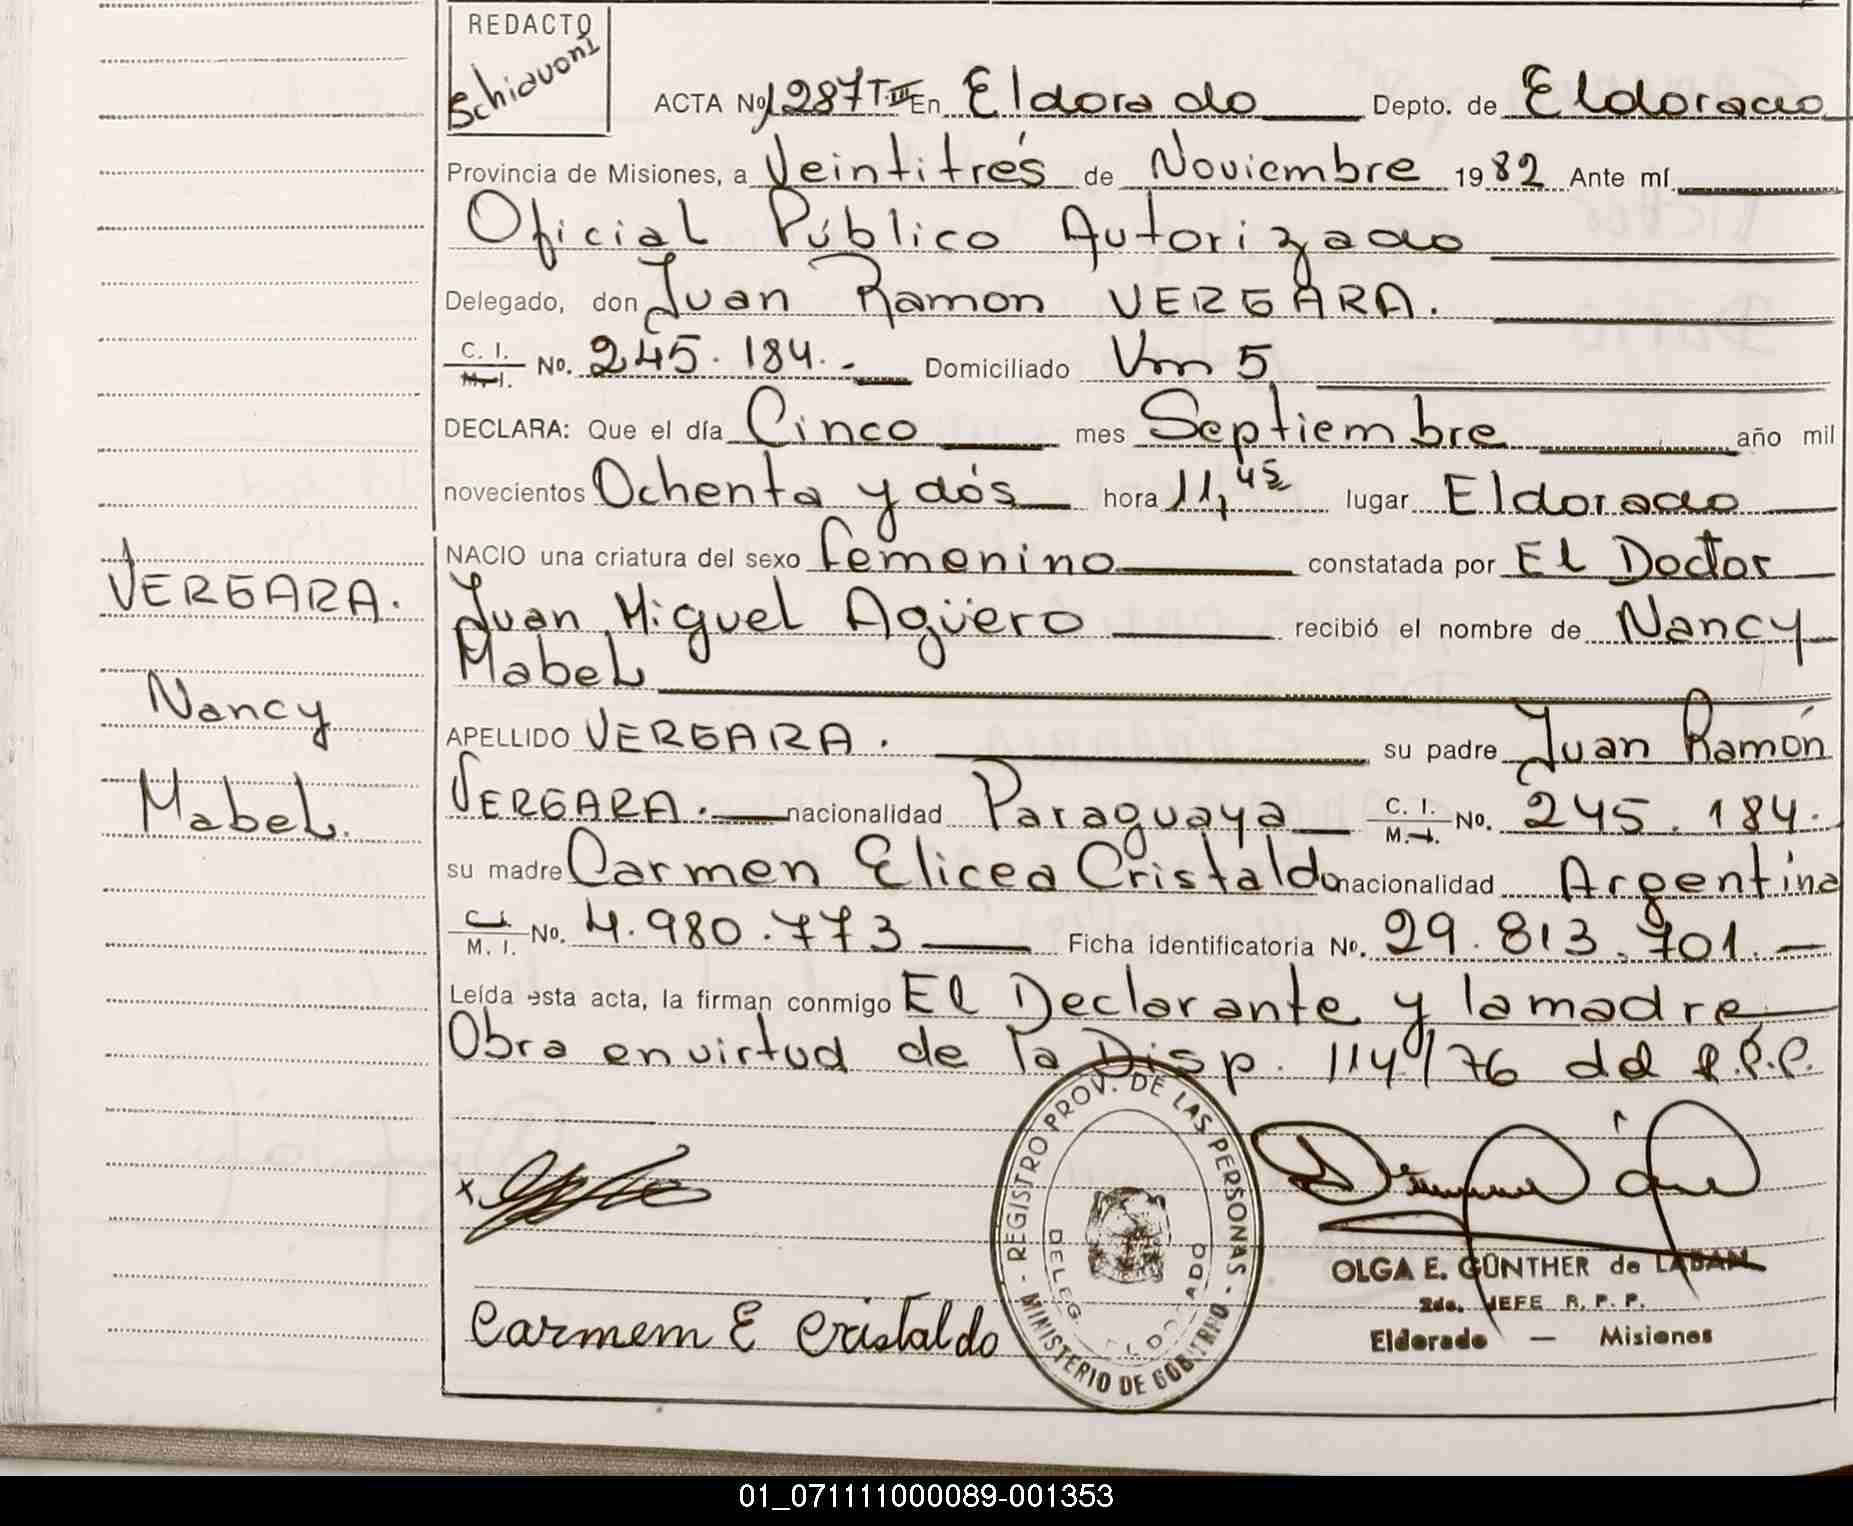 REDACTO
Schiavoni
ACTA No 1287 T.III En Eldorado Depto. de Eldorado
Provincia de Misiones, a Veintitrés de Noviembre 1982 Ante mí
Oficial Público Autorizado
Delegado, don Juan Ramon VERGARA.
C. I. M. I. No. 245.184.- Domiciliado Km 5
DECLARA: Que el día Cinco mes Septiembre año mil
novecientos Ochenta y dós hora 11,45 lugar Eldorado
NACIO una criatura del sexo femenino constatada por El Doctor
Juan Miguel Agüero recibió el nombre de Nancy
Mabel
APELLIDO VERGARA. su padre Juan Ramón
VERGARA. nacionalidad Paraguaya C. I. M. I. No. 245.184.
su madre Carmen Elicea Cristaldo nacionalidad Argentina
C. I. M. I. No. 4.980.773 Ficha identificatoria No. 29.813.701.-
Leída esta acta, la firman conmigo El Declarante y la madre
Obra en virtud de la Disp. 114/76 del R.P.P.
VERGARA.
Nancy
Mabel.
x
Carmem E Cristaldo
- REGISTRO PROV. DE LAS PERSONAS -
MINISTERIO DE GOBIERNO
DELEG. ELDORADO
OLGA E. GÜNTHER de LABAN
2do. JEFE R. P. P.
Eldorado — Misiones
01_071111000089-001353